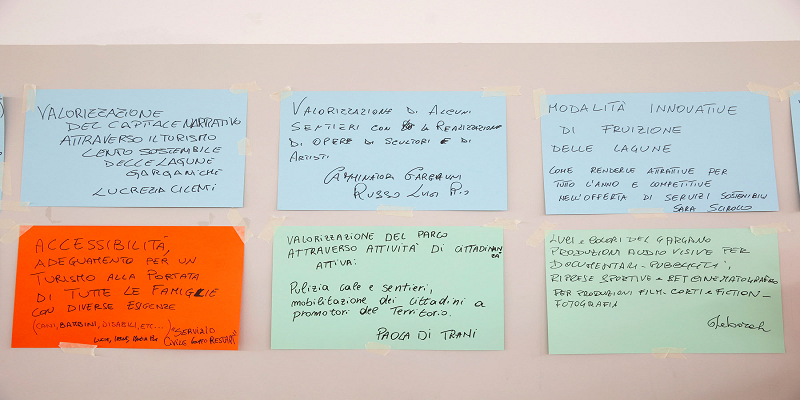 VALORIZZAZIONE
DEL CAPITALE NARRATIVO
ATTRAVERSO IL TURISMO
LENTO SOSTENIBILE
DELLE LAGUNE
GARGANICHE
LUCREZIA CILENTI
VALORIZZAZIONE DI ALCUNI
SENTIERI CON LA REALIZZAZIONE
DI OPERE DI SCULTORI E DI
ARTISTI
CAMMINATOR GARGANUM
RUSSO LUIGI PIO
MODALITÀ INNOVATIVE
DI FRUIZIONE
DELLE LAGUNE
COME RENDERLE ATTRATTIVE PER
TUTTO L'ANNO E COMPETITIVE
NELL'OFFERTA DI SERVIZI SOSTENIBILI
SARA SCIROLLO
ACCESSIBILITÀ,
ADEGUAMENTO PER UN
TURISMO ALLA PORTATA
DI TUTTE LE FAMIGLIE
CON DIVERSE ESIGENZE
(CANI, BAMBINI, DISABILI, ETC...)
"SERVIZIO
CIVILE GRUPPO RESTART"
VALORIZZAZIONE DEL PARCO
ATTRAVERSO ATTIVITÀ DI CITTADINANZA
ATTIVA:
Pulizia cale e sentieri,
mobilitazione dei cittadini a
promotori del Territorio.
PAOLA DI TRANI
LUCI e COLORI DEL GARGANO
PRODUZIONI AUDIO VISIVE PER
DOCUMENTARI - PUBBLICITÀ,
RIPRESE SPORTIVE e SET CINEMATOGRAFICO
PER PRODUZIONI FILM - CORTI e FICTION -
FOTOGRAFIA
Deborah